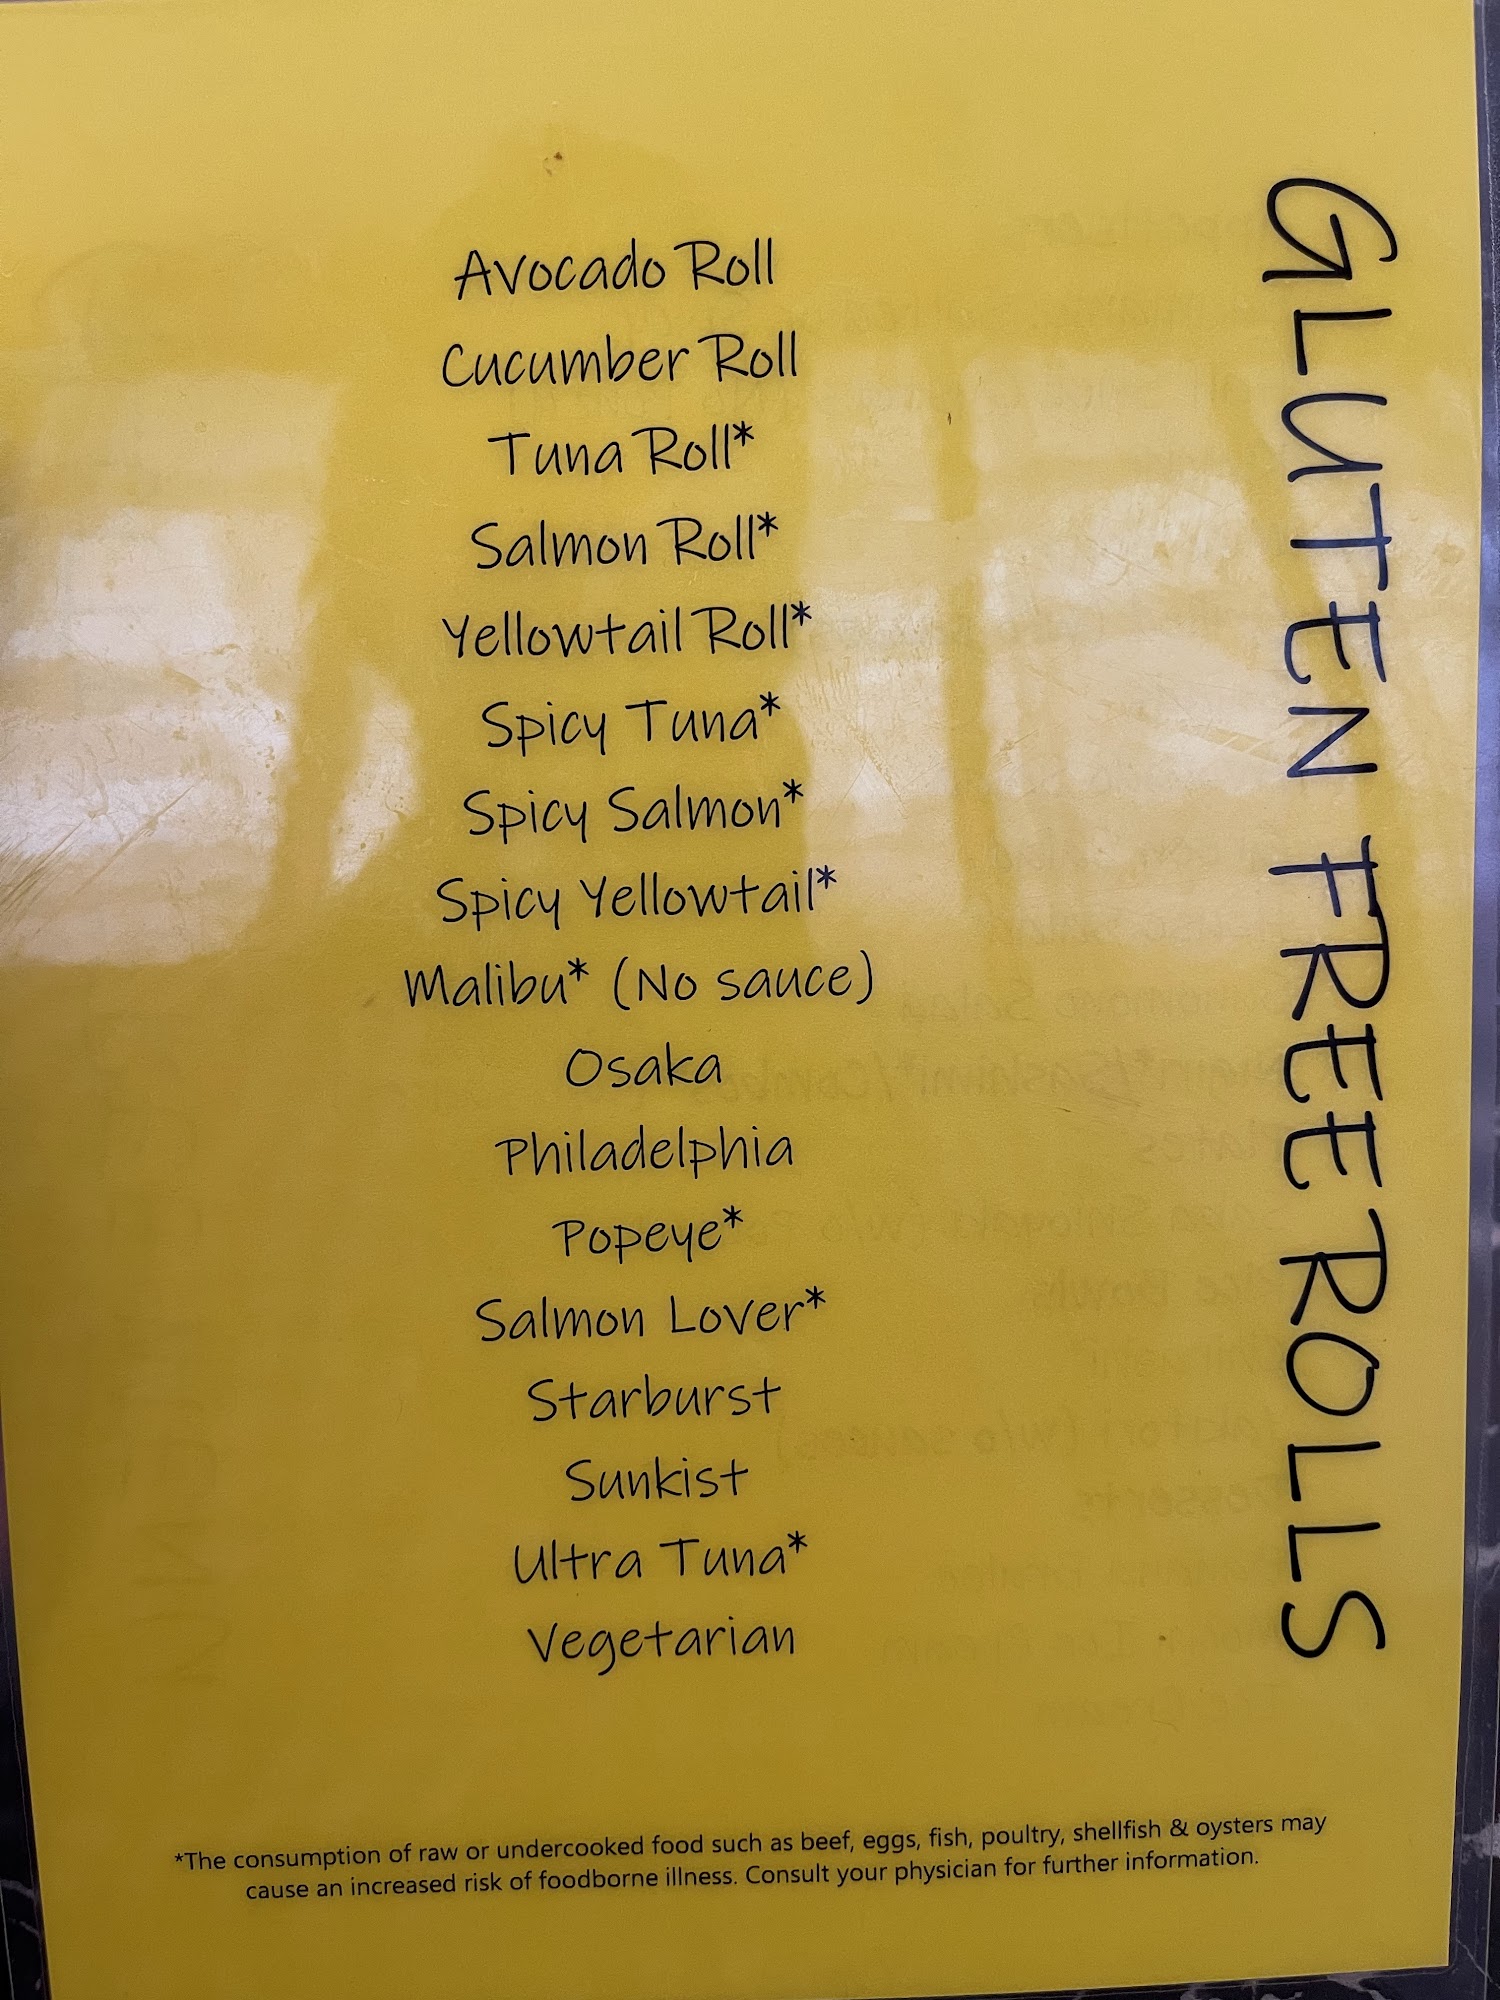 GLUTEN FREE ROLLS
Avocado Roll
Cucumber Roll
Tuna Roll*
Salmon Roll*
Yellowtail Roll*
Spicy Tuna*
Spicy Salmon*
Spicy Yellowtail*
Malibu* (No sauce)
Osaka
Philadelphia
Popeye*
Salmon Lover*
Starburst
Sunkist
Ultra Tuna*
Vegetarian
*The consumption of raw or undercooked food such as beef, eggs, fish, poultry, shellfish & oysters may
cause an increased risk of foodborne illness. Consult your physician for further information.